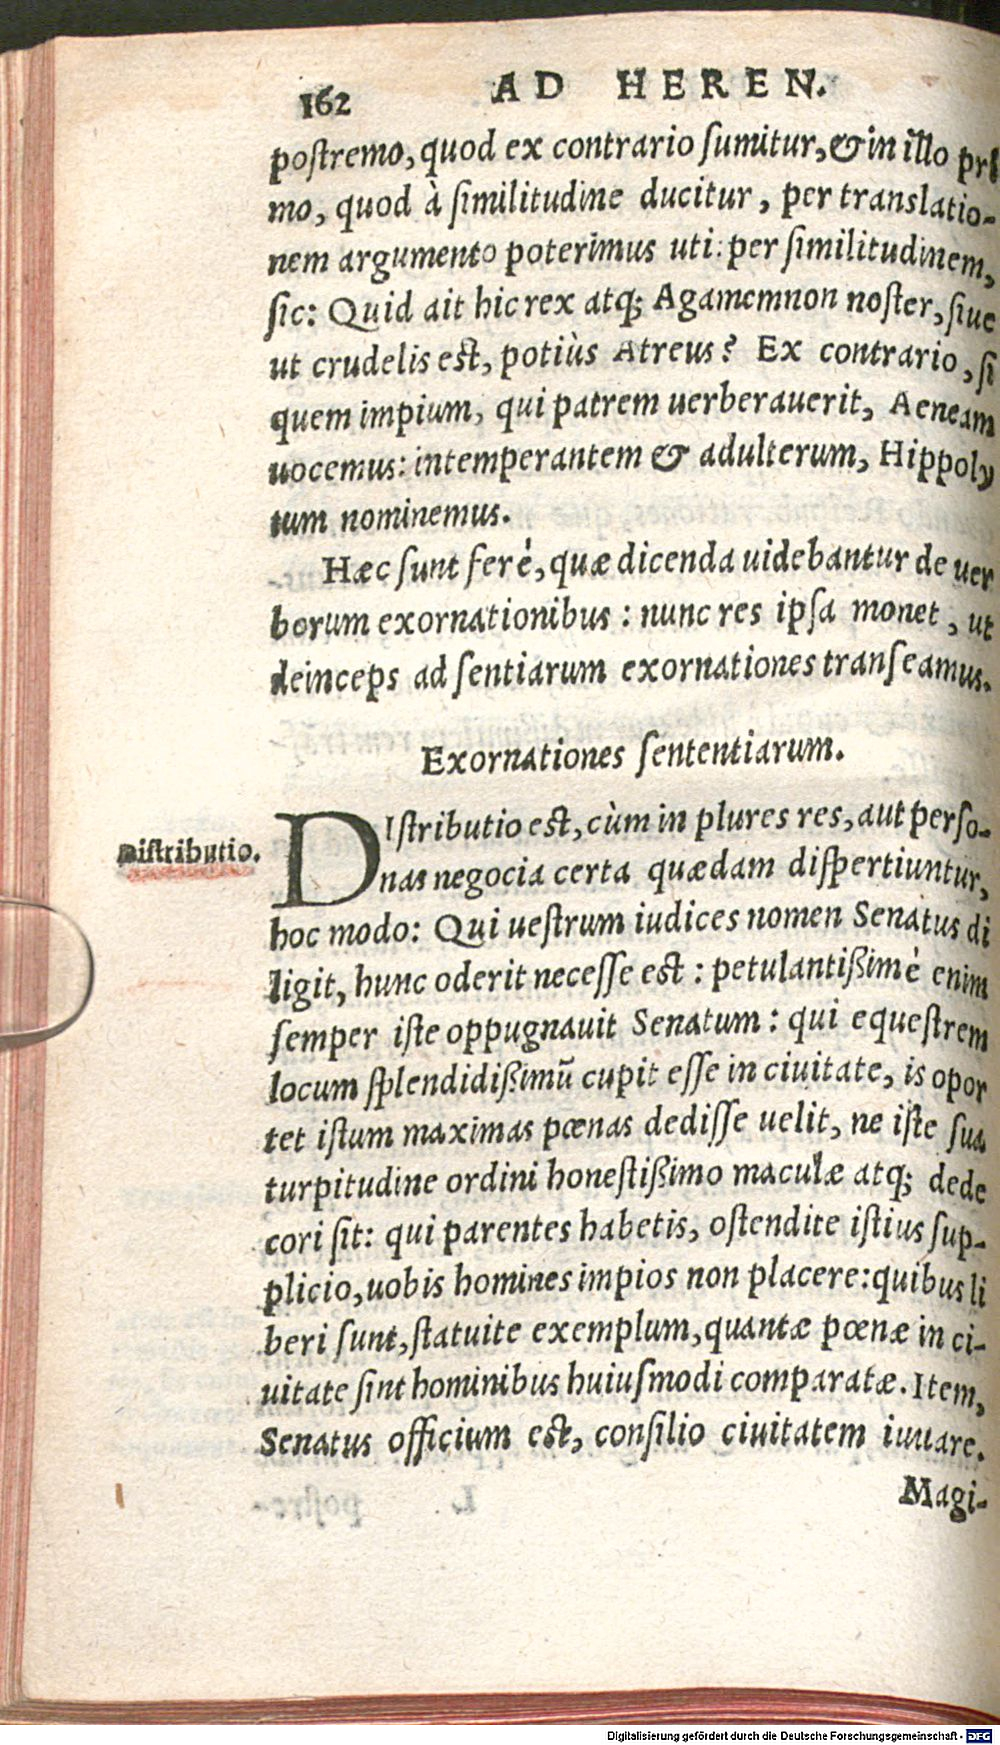 162 AD HEREN.
postremo, quod ex contrario sumitur, & in illo pri
mo, quod à similitudine ducitur, per translatio-
nem argumento poterimus uti: per similitudinem,
sic: Quid ait hic rex atq; Agamemnon noster, siue
ut crudelis est, potiùs Atreus? Ex contrario, si
quem impium, qui patrem uerberauerit, Aeneam
uocemus: intemperantem & adulterum, Hippoly
tum nominemus.
Hæc sunt ferè, quæ dicenda uidebantur de uer
borum exornationibus: nunc res ipsa monet, ut
deinceps ad sentiarum exornationes transeamus.
Exornationes sententiarum.
Distributio.
DIstributio est, cùm in plures res, aut perso-
nas negocia certa quædam dispertiuntur,
hoc modo: Qui uestrum iudices nomen Senatus di
ligit, hunc oderit necesse est: petulantißimè enim
semper iste oppugnauit Senatum: qui equestrem
locum splendidißimũ cupit esse in ciuitate, is opor
tet istum maximas pœnas dedisse uelit, ne iste sua
turpitudine ordini honestißimo maculæ atq; dede
cori sit: qui parentes habetis, ostendite istius sup-
plicio, uobis homines impios non placere: quibus li
beri sunt, statuite exemplum, quantæ pœnæ in ci-
uitate sint hominibus huiusmodi comparatæ. Item,
Senatus officium est, consilio ciuitatem iuuare.
Magi-
Digitalisierung gefördert durch die Deutsche Forschungsgemeinschaft - DFG